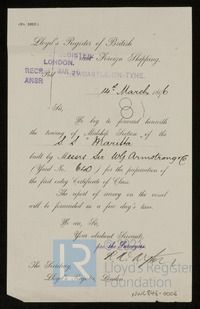 Lloyd's Register of British
and Foreign Shipping.
LONDON.
NEWCASTLE-ON-TYNE.
Port
14th March 1896
Sir,
We beg to forward herewith
the tracing of Midship Section of the
S.S. "Maritta"
built by Messrs Sir W G Armstrong & Co
(Yard No. 640) for the preparation of
the first entry Certificate of Class.
The report of survey on the vessel
will be forwarded in a few day's time.
We are, Sir,
Your obedient Servants,
for the Surveyors
The Secretary,
Lloyd's Register, London.
Lloyd's Register
Foundation